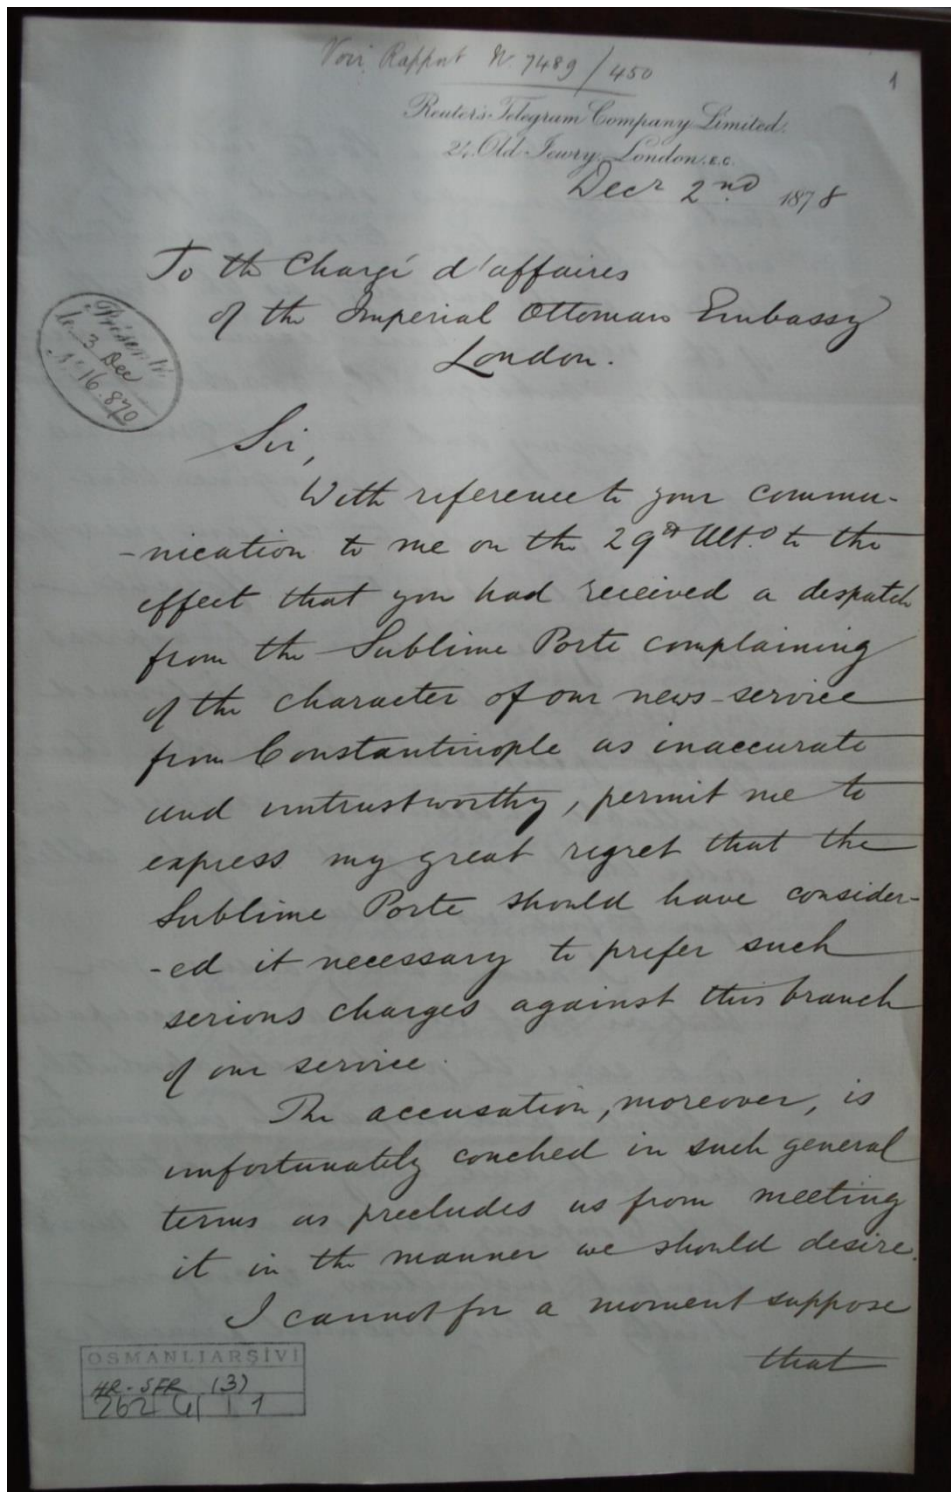 Voir Rapport N. 7489 / 450
1
Reuter's Telegram Company Limited.
24, Old Jewry, London. E.C.
Decr 2nd 1878
To the Chargé d'affaires
of the Imperial Ottoman Embassy
London.
Présenté
le 3 Dec
No 16.870
Sir,
With reference to your commu-
-nication to me on the 29th Ulto to the
effect that you had received a despatch
from the Sublime Porte complaining
of the character of our news-service
from Constantinople as inaccurate
and untrustworthy, permit me to
express my great regret that the
Sublime Porte should have consider-
-ed it necessary to prefer such
serious charges against this branch
of our service.
The accusation, moreover, is
unfortunately couched in such general
terms as precludes us from meeting
it in the manner we should desire.
I cannot for a moment suppose
that
OSMANLI ARŞİVİ
HR-SFR (3)
262 4 1 1